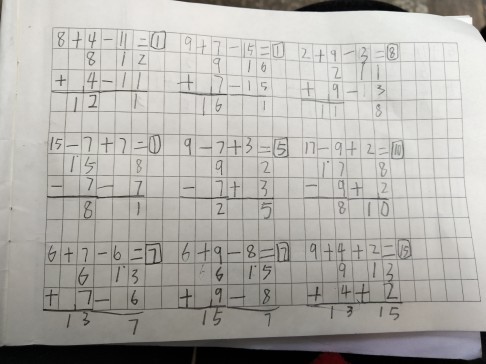 8+4-11=1 9+7-15=1 2+9-3=8
8 12 9 16 2 11
+ 4 - 11 + 7 - 15 + 9 - 3
12 1 16 1 11 8
15-7+7=1 9-7+3=5 17-9+2=10
15 8 9 2 17 8
- 7 - 7 - 7 + 3 - 9 + 2
8 1 2 5 8 10
6+7-6=7 6+9-8=7 9+4+2=15
6 13 6 15 9 13
+ 7 - 6 + 9 - 8 + 4 + 2
13 7 15 7 13 15